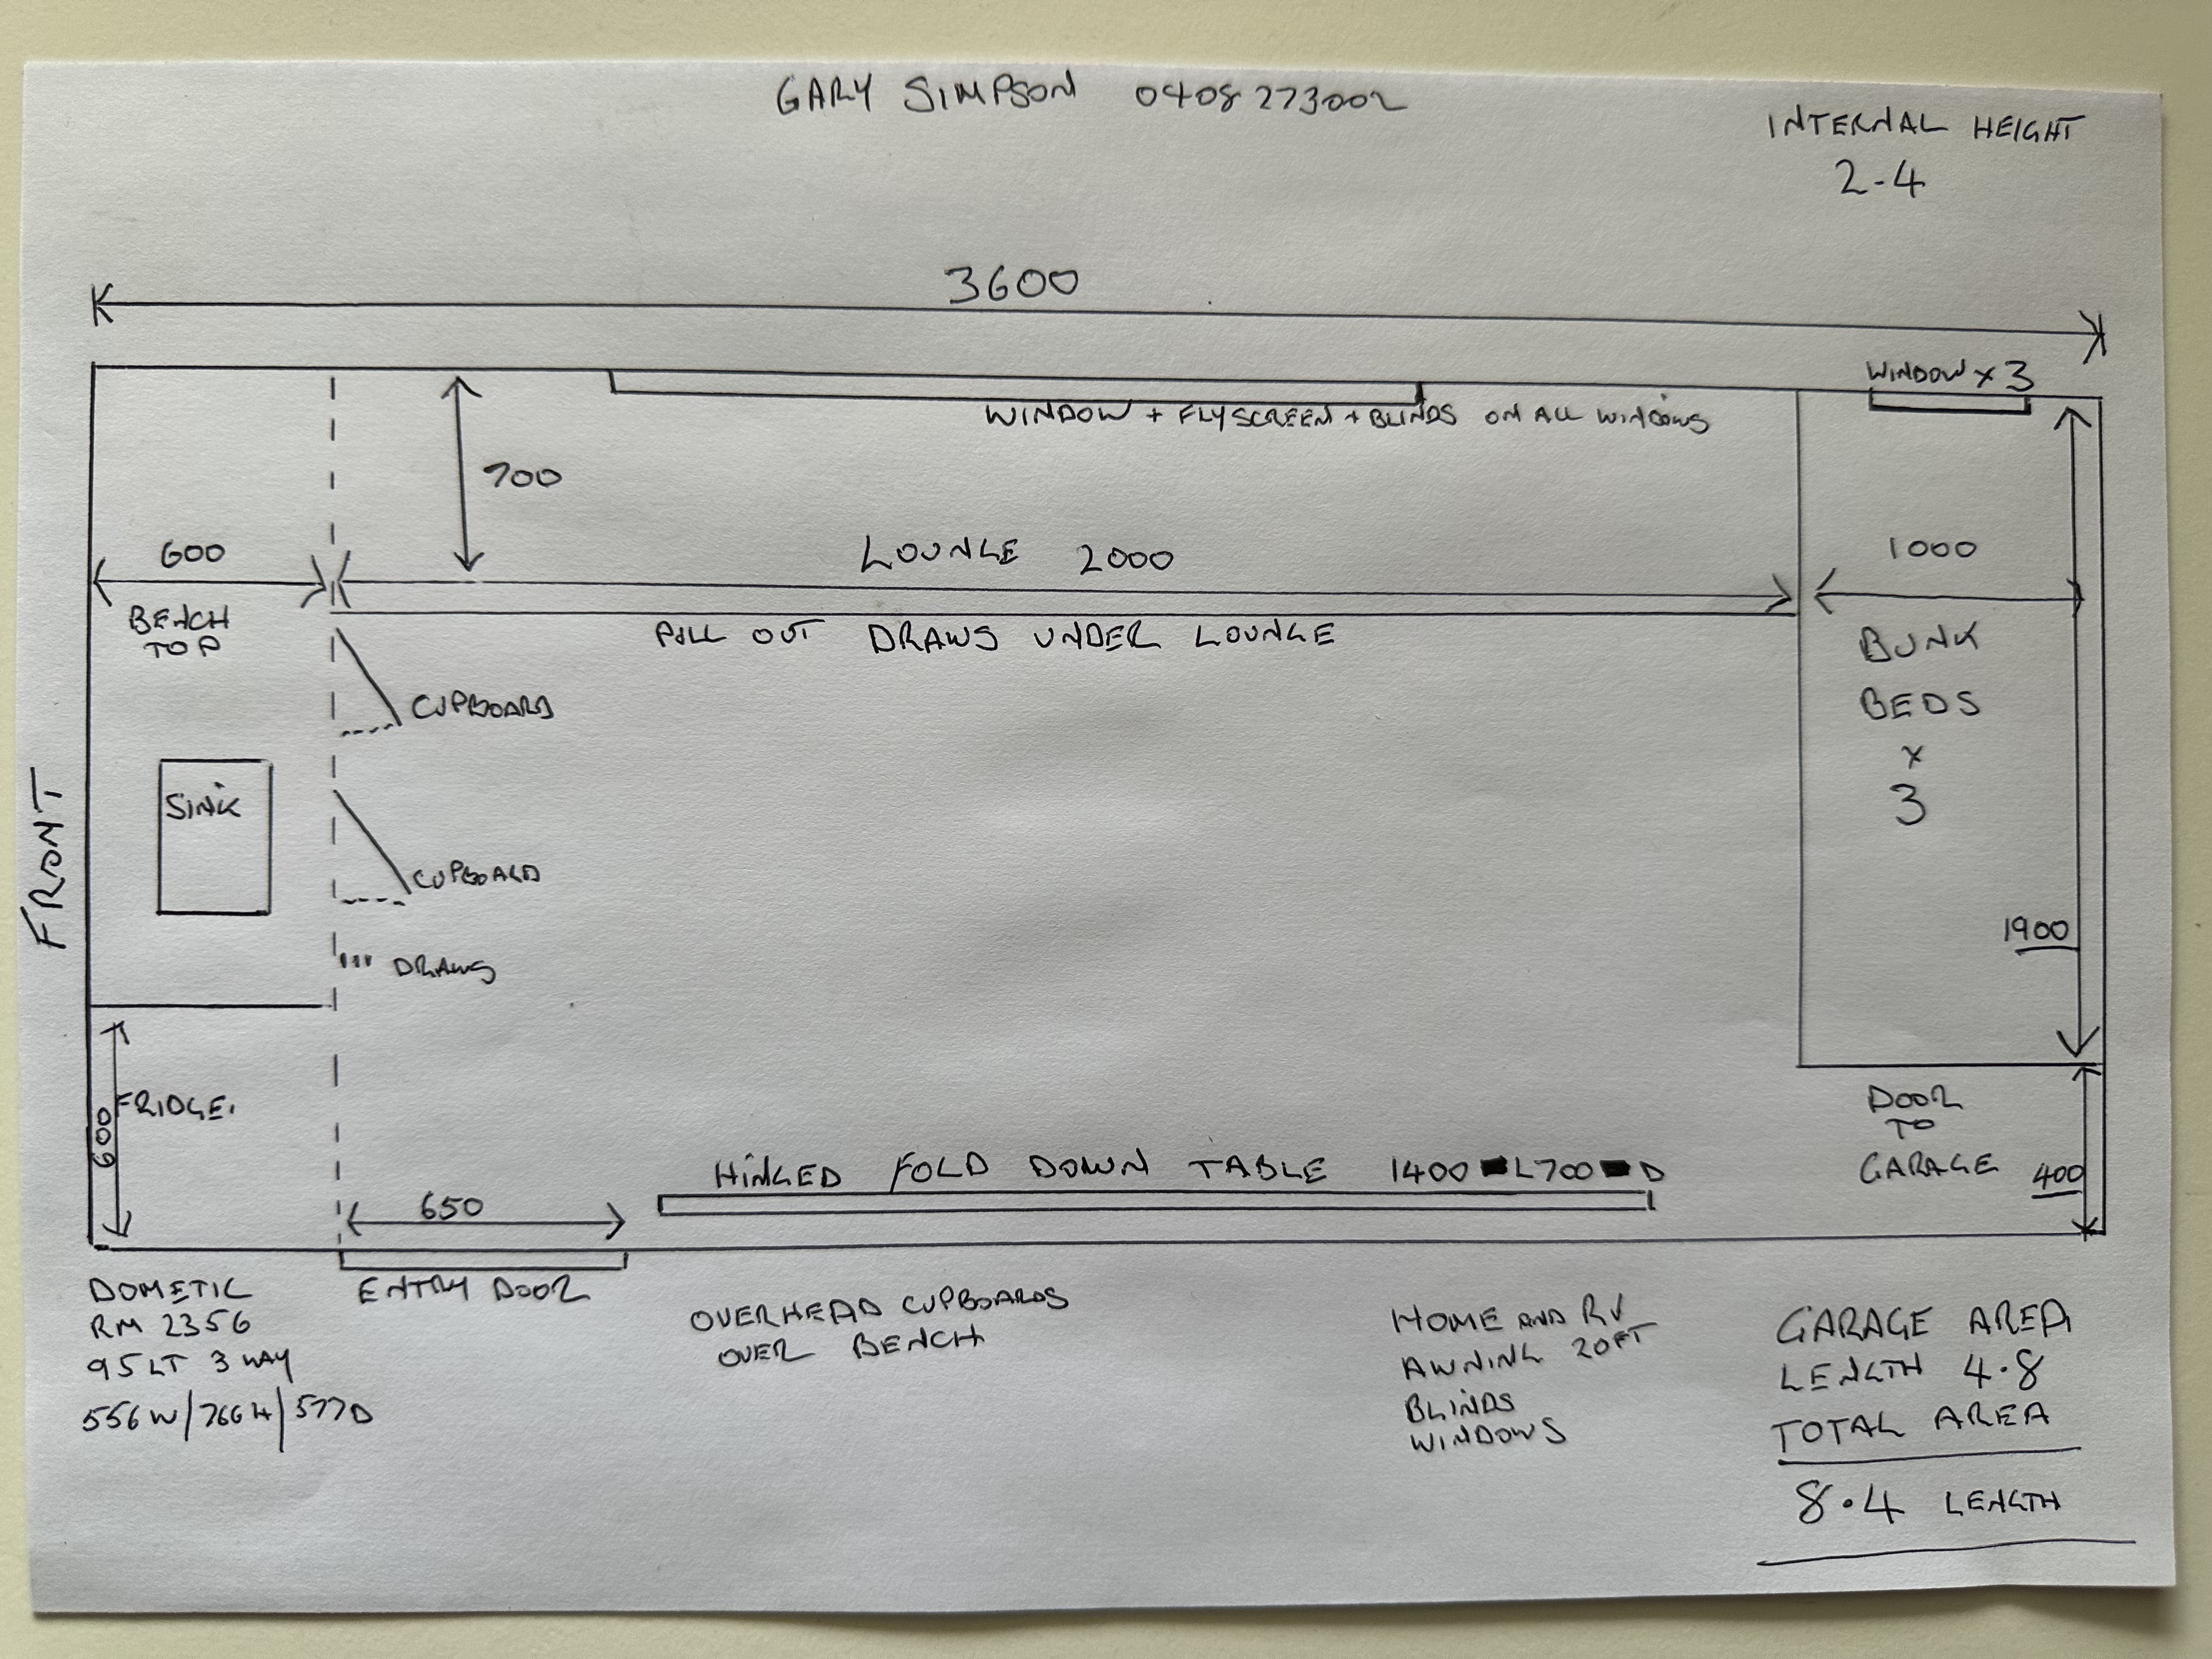 GARY SIMPSON 0408 273002
INTERNAL HEIGHT
2-4
3600
WINDOW x 3
WINDOW + FLYSCREEN + BLINDS ON ALL WINDOWS
700
600
LOUNGE 2000
1000
BENCH
TOP
PULL OUT DRAWS UNDER LOUNGE
BUNK
BEDS
x
3
CUPBOARD
SINK
FRONT
CUPBOARD
1900
DRAWS
FRIDGE.
600
DOOR
TO
GARAGE
400
HINGED FOLD DOWN TABLE 1400 L 700 D
650
ENTRY DOOR
DOMETIC
RM 2356
95 LT 3 WAY
556 W/766 H/577 D
OVERHEAD CUPBOARDS
OVER BENCH
HOME AND RV
AWNING 20FT
BLINDS
WINDOWS
GARAGE AREA
LENGTH 4.8
TOTAL AREA
8.4 LENGTH